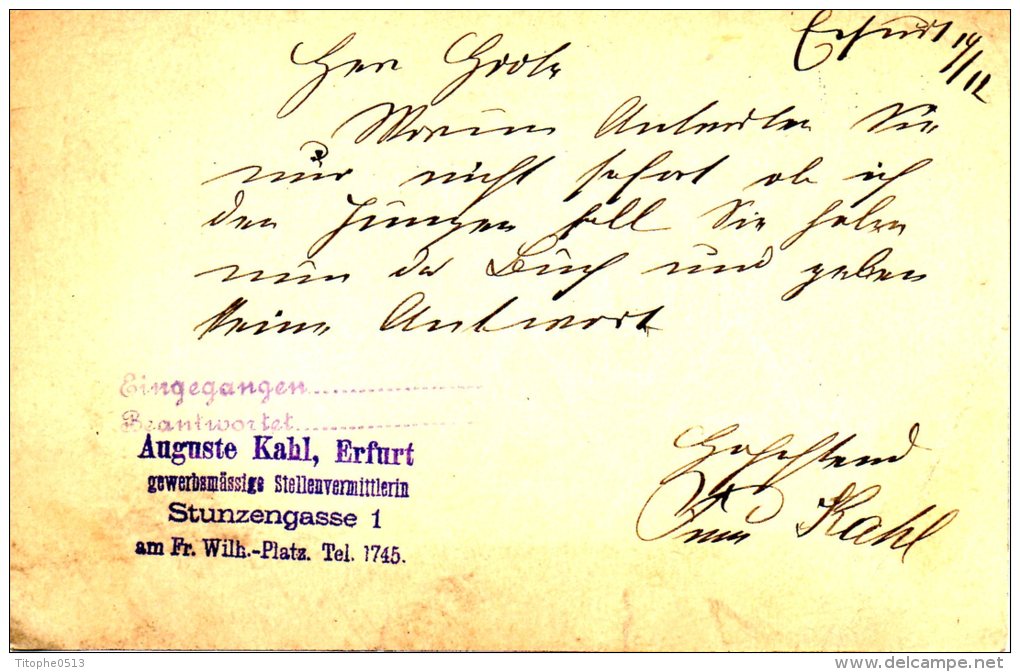 Erfurt 14/12
Herr Grote
Warum Antworten Sie
mir nicht sofort ob ich
den Jungen soll Sie holen
nur da Buch und geben
keine Antwort
Eingegangen....................
Beantwortet....................
Auguste Kahl, Erfurt
gewerbsmässige Stellenvermittlerin
Stunzengasse 1
am Fr. Wilh.-Platz. Tel. 1745.
Hochachtend
Frau Kahl
Titophe0513
www.delcampe.net